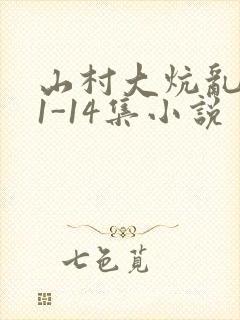 山村大炕乱
1-14集小说
七色苋